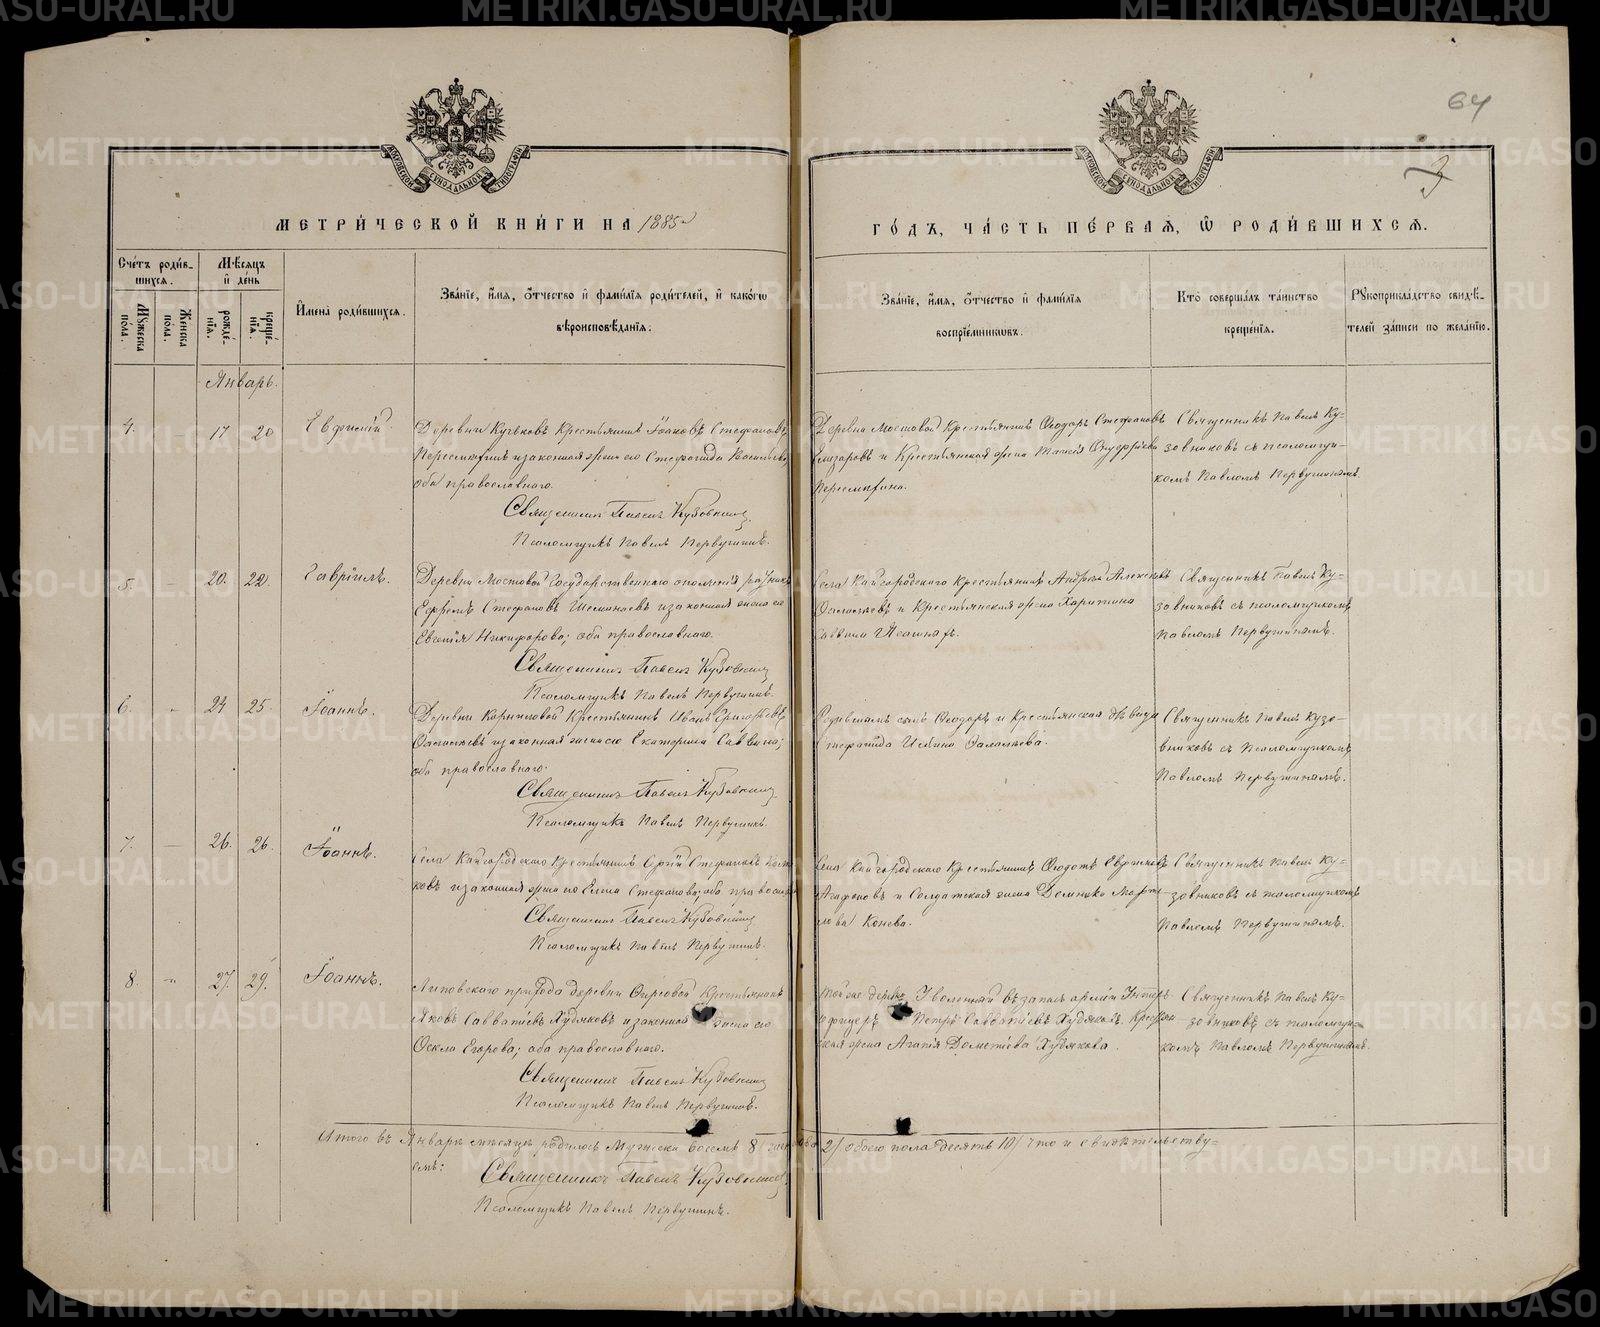 64
3
МЕТРИ́ЧЕСКОЙ КНИ́ГИ НА 1885 г.
ГО́ДЪ, ЧА́СТЬ ПЕ́РВАЯ, Ѡ РОДИ́ВШИХСЯ.
Сче́тъ роди́в-
шихся.
Мꙋжеска по́ла.
Женска по́ла.
Мѣ́сяцъ
и҆ де́нь
рожде́нїя.
креще́нїя.
И҆мена̀ роди́вшихся.
Зва́нїе, и҆́мя, ѻ҆́тчество и҆ фами́лїя роди́телей, и҆ како́гѡ
вѣроисповѣ́данїя.
Зва́нїе, и҆́мя, ѻ҆́тчество и҆ фами́лїя
воспрїе́мникѡвъ.
Кто̀ соверша́лъ та́инство
креще́нїя.
Рꙋкоприкла́дство свидѣ́-
телей за́писи по жела́нїю.
Январь.
4. 17 20 Евфимій
Деревни Кучковъ Крестьянинъ Іоаковъ Стефановъ
и законная жена его Стефанида Васильева,
оба православнаго.
Священникъ Павелъ Кузовниковъ
Псаломщикъ Павелъ Первушинъ.
Деревни Мостовой Крестьянинъ Ѳеодоръ Стефановъ
Елизаровъ и Крестьянская жена Таисія
Священникъ Павелъ Ку-
зовниковъ съ псаломщи-
комъ Павломъ Первушинымъ.
5. 20. 22. Гавріилъ.
Деревни Мостовой Государственнаго ополченія ратникъ
Ефремъ Стефановъ и законная жена его
Евгенія Никифорова; оба православнаго.
Священникъ Павелъ Кузовниковъ
Псаломщикъ Павелъ Первушинъ.
Села Кайгородскаго Крестьянинъ Андрей Алексѣевъ
и Крестьянская жена Харитина
Саввина
Священникъ Павелъ Ку-
зовниковъ съ псаломщикомъ
Павломъ Первушинымъ.
6. 24 25. Іоаннъ.
Деревни Корниловой Крестьянинъ Иванъ Григорьевъ
и законная жена его Екатерина Саввина;
оба православнаго.
Священникъ Павелъ Кузовниковъ
Псаломщикъ Павелъ Первушинъ.
Родившаго сынъ Ѳеодоръ и Крестьянская дѣвица
Стефанида
Священникъ Павелъ Кузо-
вниковъ съ Псаломщикомъ
Павломъ Первушинымъ.
7. 26. 26. Іоаннъ.
Села Кайгородскаго Крестьянинъ Сергій Стефановъ
и законная жена его Елена Стефанова, оба православн.
Священникъ Павелъ Кузовниковъ
Псаломщикъ Павелъ Первушинъ.
Села Кайгородскаго Крестьянинъ Ѳеодотъ
Агафоновъ и Солдатская жена Домника Марты-
нова Конева.
Священникъ Павелъ Ку-
зовниковъ съ псаломщикомъ
Павломъ Первушинымъ.
8. 27. 29. Іоаннъ.
Липовскаго прихода деревни Фирсовой Крестьянинъ
Яковъ Савватіевъ Худяковъ и законная жена его
Ѳекла Егорова; оба православнаго.
Священникъ Павелъ Кузовниковъ
Псаломщикъ Павелъ Первушинъ.
Той же деревни Уволенный въ запасъ арміи Унтеръ
офицеръ Петръ Савватіевъ Худяковъ, Крестьян-
ская жена Агапія Дометіева Худякова.
Священникъ Павелъ Ку-
зовниковъ съ псаломщи-
комъ Павломъ Первушинымъ.
Итого въ Январѣ мѣсяцѣ родилось Мужеска восемь 8/ женска два 2/ обоего пола десять 10/ что и свидѣтельству-
емъ:
Священникъ Павелъ Кузовниковъ
Псаломщикъ Павелъ Первушинъ.
METRIKI.GASO-URAL.RU